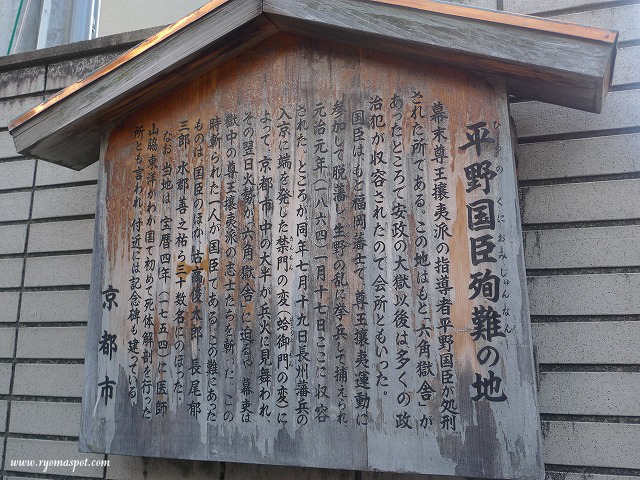 平野国臣殉難の地
ひらの くにおみじゅんなん
幕末尊王攘夷派の指導者平野国臣が処刑
された所である。この地はもと「六角獄舎」が
あったところで安政の大獄以後は多くの政
治犯が収容されたので会所ともいった。
国臣はもと福岡藩士で、尊王攘夷運動に
参加して脱藩し、生野の乱に挙兵して捕えられ
元治元年(一八六四)一月十七日ここに収容
された。ところが同年七月十九日長州藩兵の
入京に端を発した禁門の変(蛤御門の変)に
きんもん
よって、京都市中の大半が兵火に見舞われ、
その翌日火勢が六角獄舎に迫るや、幕吏は
獄中の尊王攘夷派の志士たちを斬った。この
時斬られた一人が国臣である。この難にあった
ものは、国臣のほか、古高俊太郎、長尾郁
三郎、水郡善之祐ら三十数名にのぼった。
なお、当地は、宝暦四年(一七五四)に医師
山脇東洋がわが国で初めて死体解剖を行った
所とも言われ、付近には記念碑も建っている。
京都市
www.ryomaspot.com